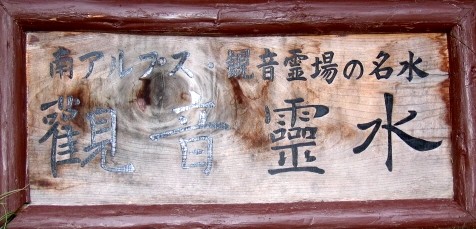 南アルプス・観音霊場の名水
觀音靈水